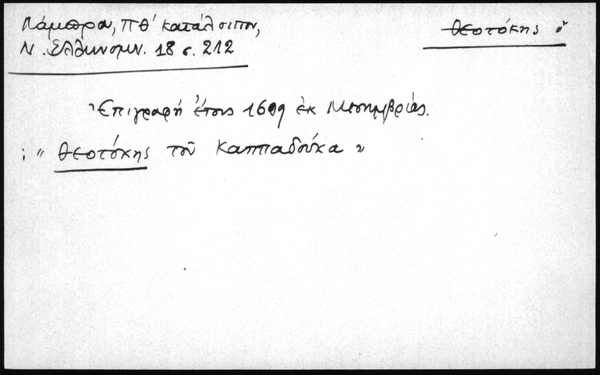 Λάμπρου, ΠΘ´ κατάλοιπον,
Ν. Ἑλληνομν. 18 σ. 212
Θεοτόκης ὁ
Ἐπιγραφή ἔτους 1609 ἐκ Μεσημβρίας.
: " Θεοτόκης τοῦ Καππαδούκα "